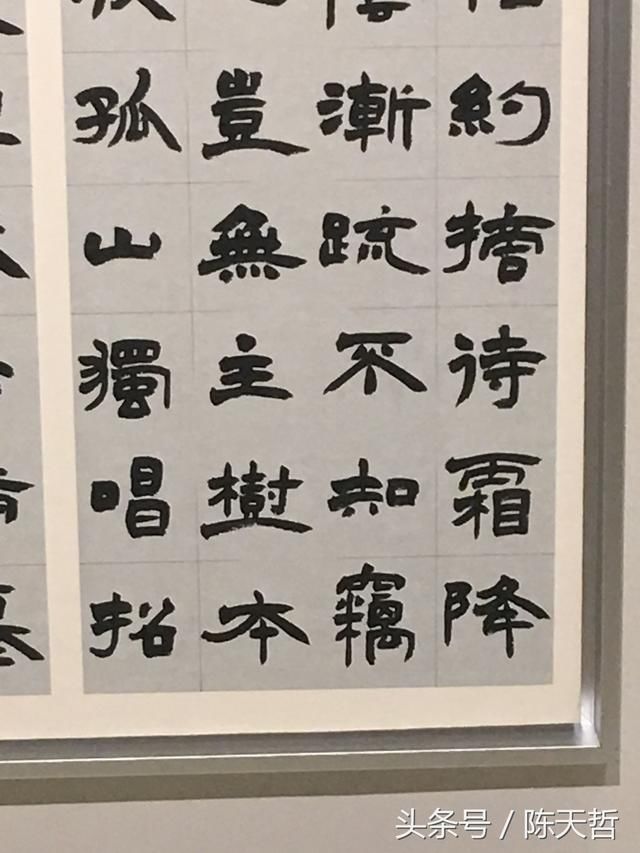 約待霜降
漸疏不知竊
豈無主樹本
孤山獨唱招
头条号 / 陈天哲